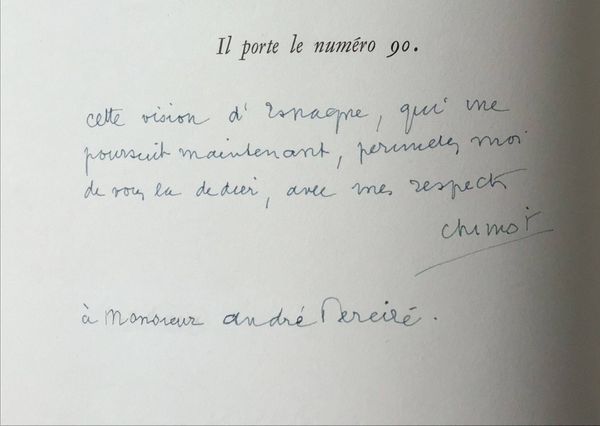 Il porte le numéro 90.
cette vision d'Espagne, qui me
poursuit maintenant, permettez moi
de vous la dedier, avec mes respects
Chimot
à Monsieur andré Pereiré.